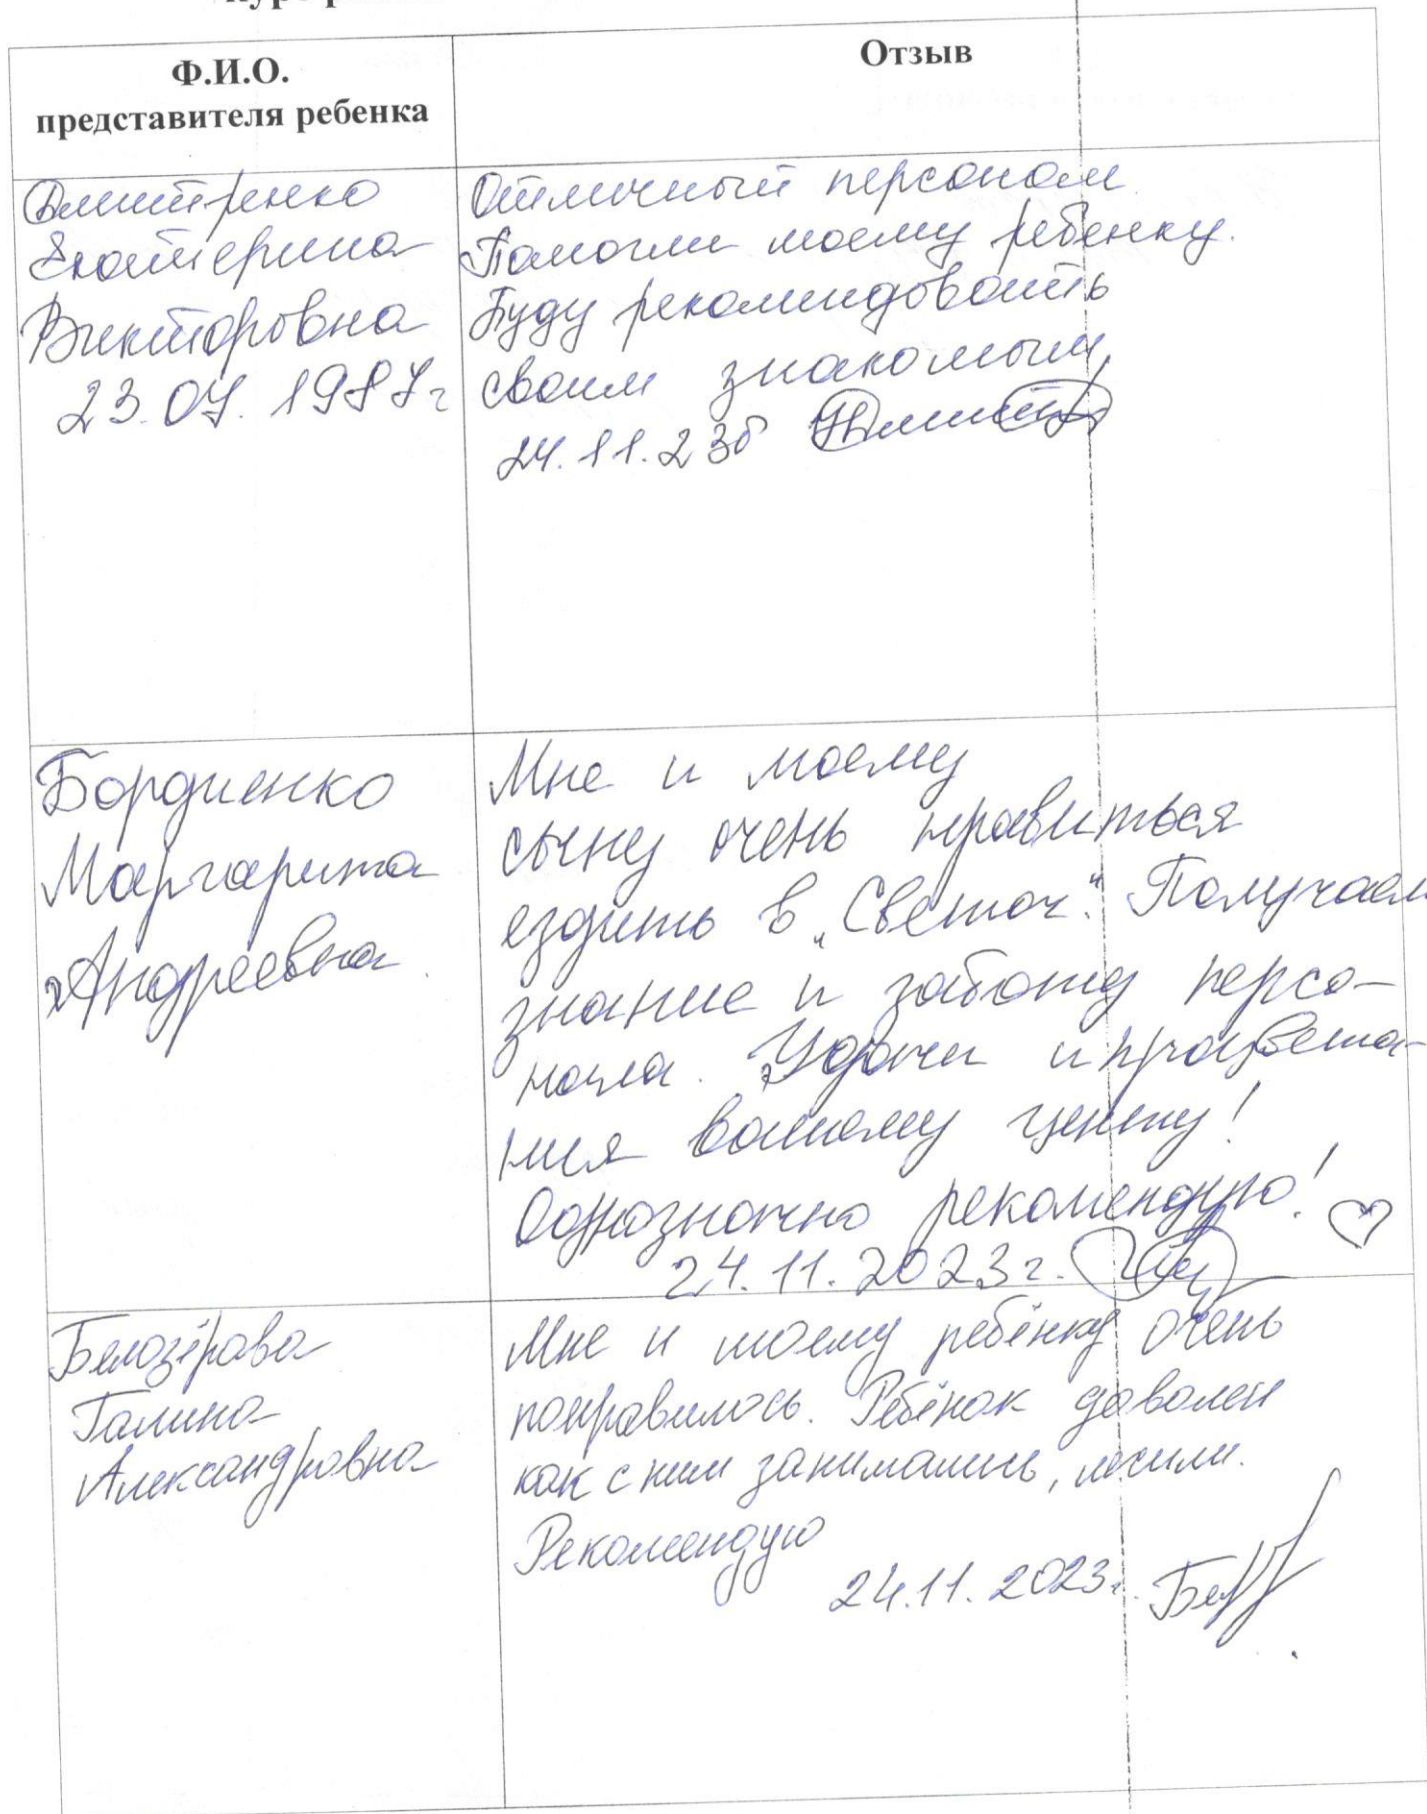 Ф.И.О.
представителя ребенка
Отзыв
Дмитренко
Екатерина
Викторовна
23.07.1987г
Отличный персонал.
Помогли моему ребенку.
Буду рекомендовать
своим знакомым
24.11.23
Бордиенко
Маргарита
Андреевна.
Мне и моему
сыну очень нравиться
ездить в „Светоч“. Получаем
знание и заботу персо-
нала. Удачи и процвета-
ния вашему центу!
Однозначно рекомендую!
24.11.2023г.
Белозёрова
Галина
Александровна
Мне и моему ребёнку очень
понравилось. Ребёнок доволен
как с ним занимались, лечили.
Рекомендую
24.11.2023г. Бел